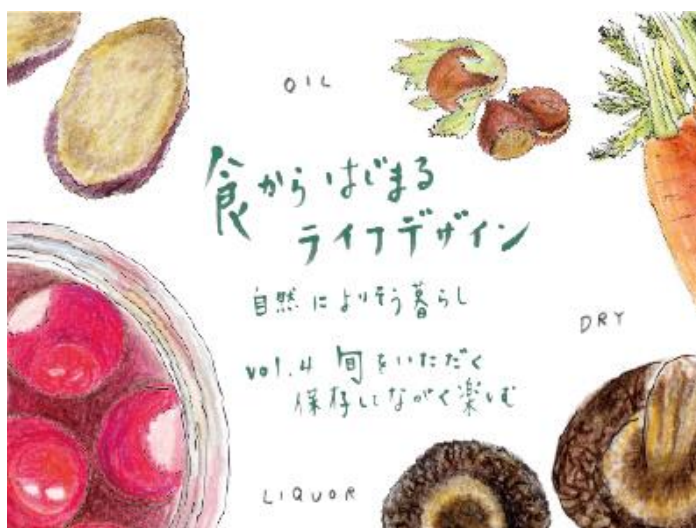 OIL
食からはじまる
ライフデザイン
自然によりそう暮らし
DRY
vol.4 旬をいただく
保存してながく楽しむ
LIQUOR